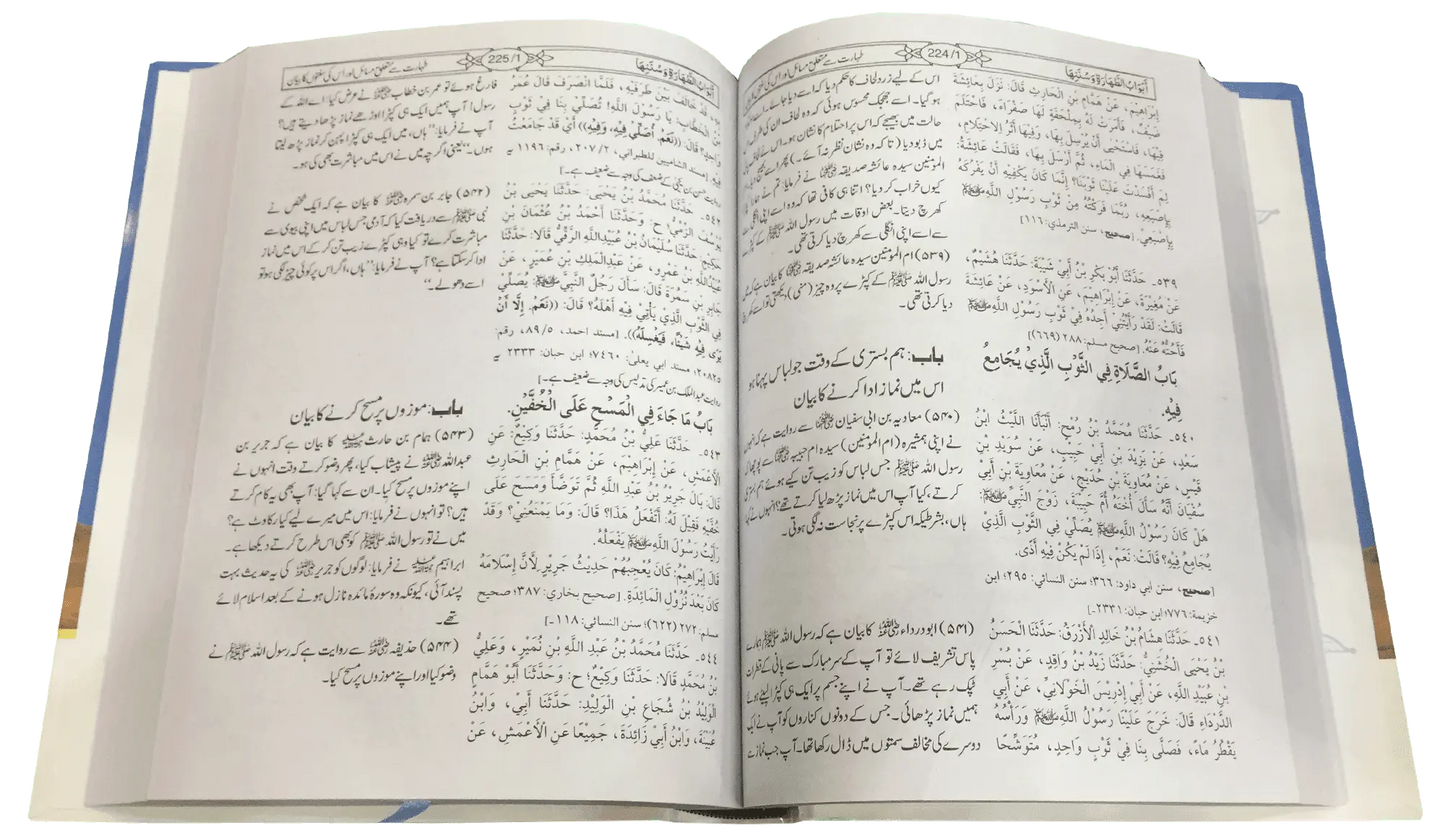 أبواب الطهارة وسننها
224/1
إِبْرَاهِيمَ، عَنْ هَمَّامِ بْنِ الْحَارِثِ قَالَ: نَزَلَ بِعَائِشَةَ
ضَيْفٌ، فَأَمَرَتْ لَهُ بِمِلْحَفَةٍ لَهَا صَفْرَاءَ، فَاحْتَلَمَ
فِيهَا، فَاسْتَحْيَى أَنْ يُرْسِلَ بِهَا، وَفِيهَا أَثَرُ الِاحْتِلَامِ،
فَغَمَسَهَا فِي الْمَاءِ، ثُمَّ أَرْسَلَ بِهَا، فَقَالَتْ عَائِشَةُ:
لِمَ أَفْسَدْتَ عَلَيْنَا ثَوْبَنَا؟ إِنَّمَا كَانَ يَكْفِيهِ أَنْ يَفْرُكَهُ
بِإِصْبَعِهِ، رُبَّمَا فَرَكْتُهُ مِنْ ثَوْبِ رَسُولِ اللَّهِ ﷺ
بِإِصْبَعِي. [صحیح، سنن الترمذي: ١١٦]
٥٣٩۔ حَدَّثَنَا أَبُو بَكْرِ بْنُ أَبِي شَيْبَةَ: حَدَّثَنَا هُشَيْمٌ،
عَنْ مُغِيْرَةَ، عَنْ إِبْرَاهِيمَ، عَنِ الْأَسْوَدِ، عَنْ عَائِشَةَ
قَالَتْ: لَقَدْ رَأَيْتُنِي أَجِدُهُ فِي ثَوْبِ رَسُولِ اللَّهِ ﷺ
فَأَحُتُّهُ عَنْهُ. [صحیح مسلم: ٢٨٨ (٦٦٩)]
بَابُ الصَّلَاةِ فِي الثَّوْبِ الَّذِيْ يُجَامِعُ
فِيْهِ.
٥٤٠۔ حَدَّثَنَا مُحَمَّدُ بْنُ رُمْحٍ: أَنْبَأَنَا اللَّيْثُ ابْنُ
سَعْدٍ، عَنْ يَزِيْدَ بْنِ أَبِي حَبِيبٍ، عَنْ سُوَيْدِ بْنِ
قَيْسٍ، عَنْ مُعَاوِيَةَ بْنِ حُدَيْجٍ، عَنْ مُعَاوِيَةَ بْنِ أَبِي
سُفْيَانَ أَنَّهُ سَأَلَ أُخْتَهُ أُمَّ حَبِيْبَةَ، زَوْجَ النَّبِيِّ ﷺ
هَلْ كَانَ رَسُوْلُ اللَّهِ ﷺ يُصَلِّي فِي الثَّوْبِ الَّذِي
يُجَامِعُ فِيْهِ؟ قَالَتْ: نَعَمْ، إِذَا لَمْ يَكُنْ فِيْهِ أَذًى.
[صحیح، سنن ابي داود: ٣٦٦؛ سنن النسائي: ٢٩٥؛ ابن
خزيمة: ٧٧٦؛ ابن حبان: ٢٣٣١۔]
٥٤١۔ حَدَّثَنَا هِشَامُ بْنُ خَالِدٍ الْأَزْرَقُ: حَدَّثَنَا الْحَسَنُ
بْنُ يَحْيَى الْخُشَنِيُّ: حَدَّثَنَا زَيْدُ بْنُ وَاقِدٍ، عَنْ بُسْرِ
بْنِ عُبَيْدِ اللَّهِ، عَنْ أَبِي إِدْرِيْسَ الْخَوْلَانِيِّ، عَنْ أَبِي
الدَّرْدَاءِ قَالَ: خَرَجَ عَلَيْنَا رَسُولُ اللَّهِ ﷺ وَرَأْسُهُ
يَقْطُرُ مَاءً، فَصَلَّى بِنَا فِيْ ثَوْبٍ وَاحِدٍ، مُتَوَشِّحًا
اس کے لیے زرد لحاف کا حکم دیا کہ اسے دیا جائے۔ اسے
ہو گیا۔ اسے جھجک محسوس ہوئی کہ وہ لحاف ان کی طرف
حالت میں بھیجے کہ اس پر احتلام کا نشان ہو۔ اس نے لحاف
میں ڈبو دیا (تاکہ وہ نشان نظر نہ آئے۔) پھر اسے بھیج
المومنین سیدہ عائشہ صدیقہ ؓ نے فرمایا: تم نے
کیوں خراب کر دیا؟ اتنا ہی کافی تھا کہ وہ اسے اپنی
کھرچ دیتا۔ بعض اوقات میں رسول اللہ ﷺ کے کپڑے
سے اسے اپنی انگلی سے کھرچ دیا کرتی تھی۔
(۵۳۹) ام المؤمنین سیدہ عائشہ صدیقہ ؓ کا بیان ہے کہ میں
رسول اللہ ﷺ کے کپڑے پر وہ چیز (منی) دیکھتی تو اسے کھرچ
دیا کرتی تھی۔
باب: ہم بستری کے وقت جو لباس پہنا ہو
اس میں نماز ادا کرنے کا بیان
(۵۴۰) معاویہ بن ابی سفیان ؓ سے روایت ہے کہ انہوں
نے اپنی ہمشیرہ (ام المؤمنین) سیدہ ام حبیبہ ؓ سے پوچھا
رسول اللہ ﷺ جس لباس کو زیب تن کیے ہوئے ہم بستری
کرتے، کیا آپ اس میں نماز پڑھ لیا کرتے تھے؟ انہوں نے کہا
ہاں، بشرطیکہ اس کپڑے پر نجاست نہ لگی ہوتی۔
(۵۴۱) ابودرداء ؓ کا بیان ہے کہ رسول اللہ ﷺ ہمارے
پاس تشریف لائے تو آپ کے سر مبارک سے پانی کے قطرات
ٹپک رہے تھے۔ آپ نے اپنے جسم پر ایک ہی کپڑا لپیٹے ہوئے
ہمیں نماز پڑھائی۔ جس کے دونوں کناروں کو آپ نے ایک
دوسرے کی مخالف سمتوں میں ڈال رکھا تھا۔ آپ جب نماز سے
أبواب الطهارة وسننها
225/1
طہارت سے متعلق مسائل اور اس کی سنتوں کا بیان
بِهِ، قَدْ خَالَفَ بَيْنَ طَرَفَيْهِ، فَلَمَّا انْصَرَفَ قَالَ عُمَرُ
بْنُ الْخَطَّابِ: يَا رَسُوْلَ اللَّهِ! تُصَلِّي بِنَا فِي ثَوْبٍ
وَاحِدٍ؟ قَالَ: ((نَعَمْ، أُصَلِّي فِيْهِ، وَفِيْهِ)) أَيْ قَدْ جَامَعْتُ
فِيْهِ. [مسند الشاميين للطبراني، ٢/ ٢٠٧، رقم: ١١٩٦ یہ
روایت حسن بن یحییٰ کے ضعف کی وجہ سے ضعیف ہے۔]
٥٤٢۔ حَدَّثَنَا مُحَمَّدُ بْنُ يَحْيَى: حَدَّثَنَا يَحْيَى بْنُ
يُوْسُفَ الزِّمِّيُّ؛ ح: وَحَدَّثَنَا أَحْمَدُ بْنُ عُثْمَانَ بْنِ
حَكِيْمٍ: حَدَّثَنَا سُلَيْمَانُ بْنُ عُبَيْدِاللَّهِ الرَّقِّيُّ قَالَا: حَدَّثَنَا
عُبَيْدُاللَّهِ بْنُ عَمْرٍو، عَنْ عَبْدِالْمَلِكِ بْنِ عُمَيْرٍ، عَنْ
جَابِرِ بْنِ سَمُرَةَ قَالَ: سَأَلَ رَجُلٌ النَّبِيَّ ﷺ: يُصَلِّي
فِي الثَّوْبِ الَّذِيْ يَأْتِيْ فِيْهِ أَهْلَهُ؟ قَالَ: ((نَعَمْ. إِلَّا أَنْ
يَرَى فِيْهِ شَيْئًا، فَيَغْسِلَهُ)). [مسند احمد، ٥/ ٨٩، رقم:
٢٠٨٢٥؛ مسند ابي يعلىٰ: ٧٤٦٠؛ ابن حبان: ٢٣٣٣ یہ
روایت عبدالملک بن عمیر کی تدلیس کی وجہ سے ضعیف ہے۔]
بَابُ مَا جَاءَ فِي الْمَسْحِ عَلَى الْخُفَّيْنِ.
٥٤٣۔ حَدَّثَنَا عَلِيُّ بْنُ مُحَمَّدٍ: حَدَّثَنَا وَكِيْعٌ: عَنِ
الْأَعْمَشِ، عَنْ إِبْرَاهِيْمَ، عَنْ هَمَّامِ بْنِ الْحَارِثِ
قَالَ: بَالَ جَرِيْرُ بْنُ عَبْدِ اللَّهِ ثُمَّ تَوَضَّأَ وَمَسَحَ عَلَى
خُفَّيْهِ فَقِيْلَ لَهُ: أَتَفْعَلُ هَذَا؟ قَالَ: وَمَا يَمْنَعُنِيْ؟ وَقَدْ
رَأَيْتُ رَسُوْلَ اللَّهِ ﷺ يَفْعَلُهُ.
قَالَ إِبْرَاهِيْمُ: كَانَ يُعْجِبُهُمْ حَدِيْثُ جَرِيْرٍ لِأَنَّ إِسْلَامَهُ
كَانَ بَعْدَ نُزُوْلِ الْمَائِدَةِ. [صحیح بخاري: ٣٨٧؛ صحیح
مسلم: ٢٧٢ (٦٢٢)؛ سنن النسائي: ١١٨۔]
٥٤٤۔ حَدَّثَنَا مُحَمَّدُ بْنُ عَبْدِ اللَّهِ بْنِ نُمَيْرٍ، وَعَلِيُّ
بْنُ مُحَمَّدٍ قَالَا: حَدَّثَنَا وَكِيْعٌ؛ ح: وَحَدَّثَنَا أَبُوْ هَمَّامٍ
الْوَلِيْدُ بْنُ شُجَاعِ بْنِ الْوَلِيْدِ: حَدَّثَنَا أَبِيْ، وَابْنُ
عُيَيْنَةَ، وَابْنُ أَبِيْ زَائِدَةَ، جَمِيْعًا عَنِ الْأَعْمَشِ، عَنْ
فارغ ہوئے تو عمر بن خطاب ؓ نے عرض کیا: اے اللہ کے
رسول! آپ ہمیں ایک ہی کپڑا اوڑھے نماز پڑھا دیتے ہیں؟
آپ نے فرمایا: ”ہاں، میں ایک ہی کپڑا پہن کر نماز پڑھ لیتا
ہوں۔“ یعنی اگرچہ میں نے اس میں مباشرت بھی کی ہو۔
(۵۴۲) جابر بن سمرہ ؓ کا بیان ہے کہ ایک شخص نے
نبی ﷺ سے دریافت کیا کہ آدمی جس لباس میں اپنی بیوی سے
مباشرت کرے تو کیا وہی کپڑے زیب تن کر کے اس میں نماز
ادا کر سکتا ہے؟ آپ نے فرمایا: ”ہاں، اگر اس پر کوئی چیز لگی ہو تو
اسے دھولے۔“
باب: موزوں پر مسح کرنے کا بیان
(۵۴۳) ہمام بن حارث ؒ کا بیان ہے کہ جریر بن
عبداللہ ؓ نے پیشاب کیا، پھر وضو کرتے وقت انہوں نے
اپنے موزوں پر مسح کیا۔ ان سے کہا گیا: آپ بھی یہ کام کرتے
ہیں؟ تو انہوں نے فرمایا: اس میں میرے لیے کیا رکاوٹ ہے؟
میں نے تو رسول اللہ ﷺ کو بھی اس طرح کرتے دیکھا ہے۔
ابراہیم ؒ نے فرمایا: لوگوں کو جریر ؓ کی یہ حدیث بہت
پسند آئی، کیونکہ وہ سورۂ مائدہ نازل ہونے کے بعد اسلام لائے
تھے۔
(۵۴۴) حذیفہ ؓ سے روایت ہے کہ رسول اللہ ﷺ نے
وضو کیا اور اپنے موزوں پر مسح کیا۔